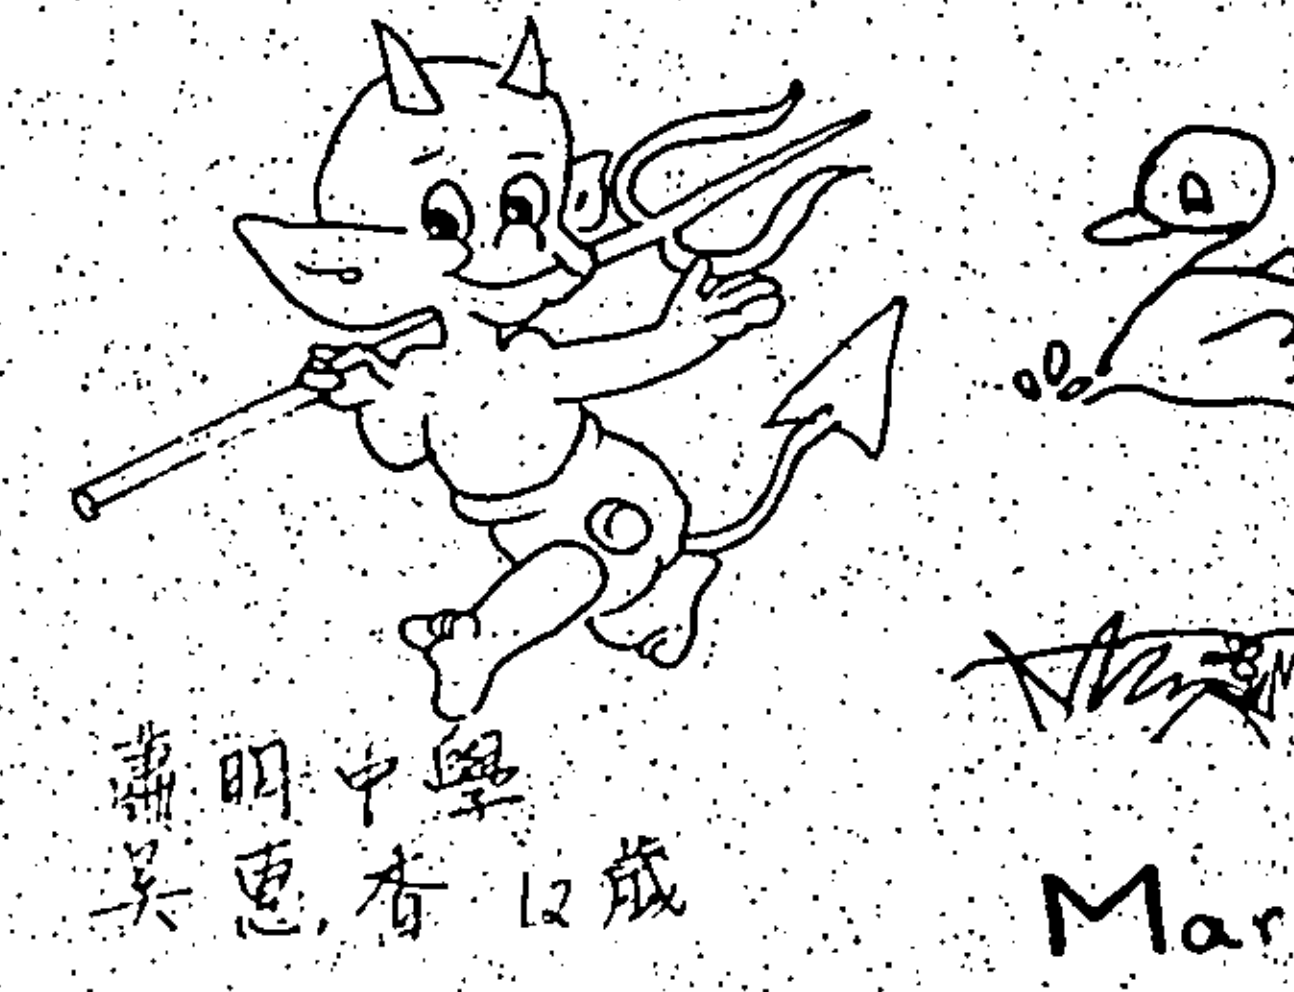 蕭明中學
吳惠香 12歲
Mar